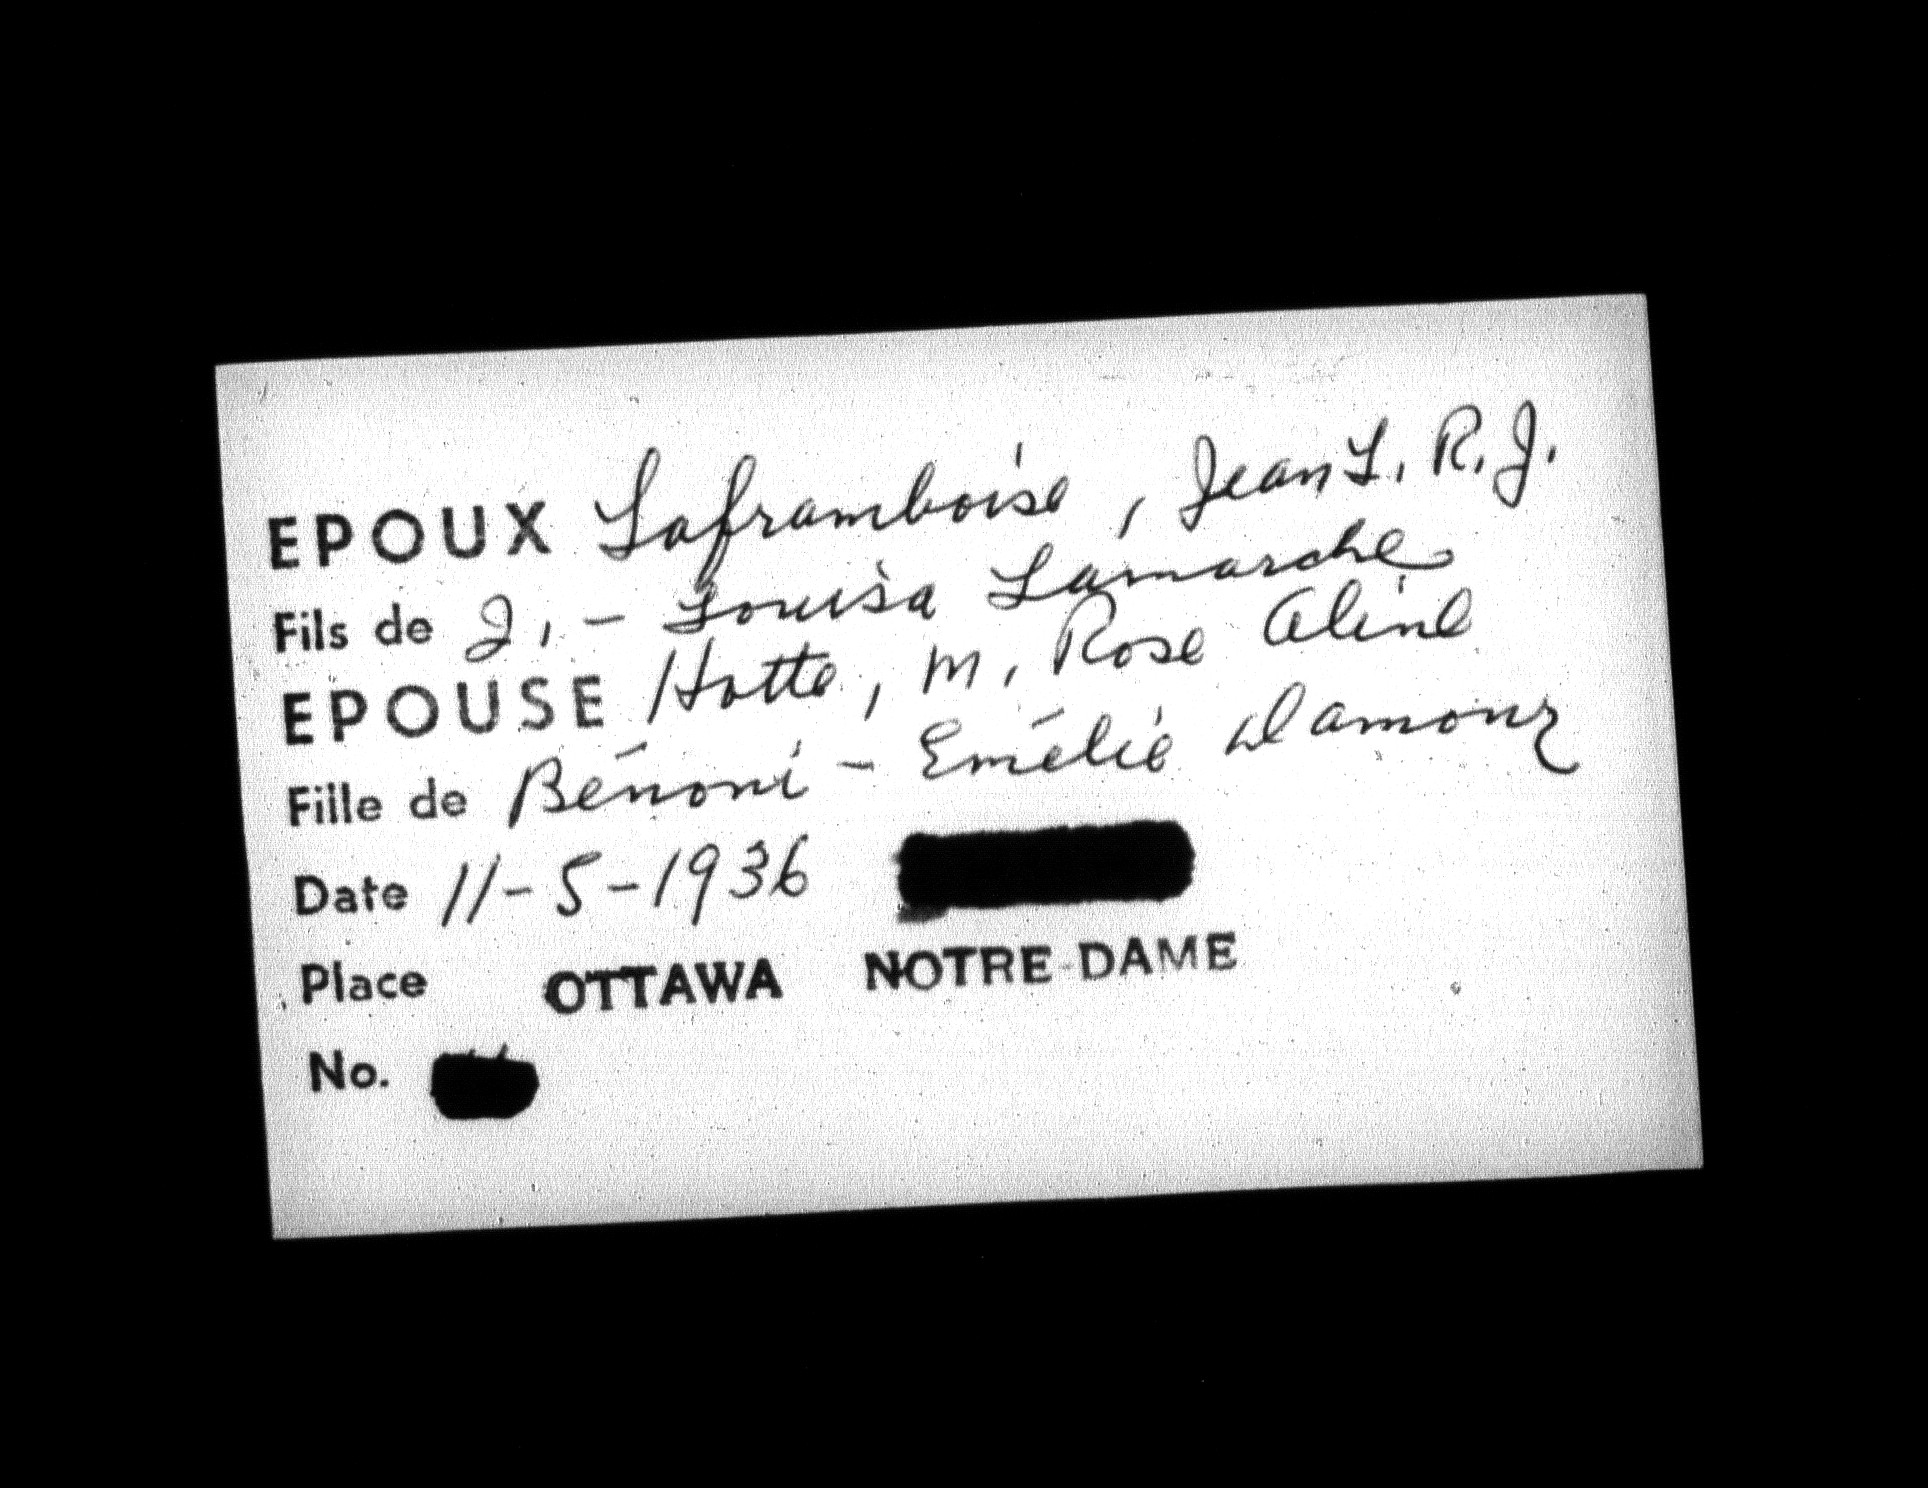 EPOUX Laframboise, Jean L. R. J.
Fils de J. - Louisa Lamarche
EPOUSE Hotte, M. Rose Aline
Fille de Bénoni - Emélie Damour
Date 11-5-1936
Place OTTAWA NOTRE-DAME
No.